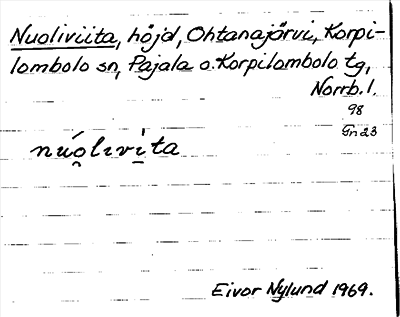 Nuoliviita, höjd, Ohtanajärvi, Korpi-
lombolo sn, Pajala o. Korpilombolo tg,
Norrb. l.
98
Gn 23
núo̯livi̱ta
Eivor Nylund 1969.